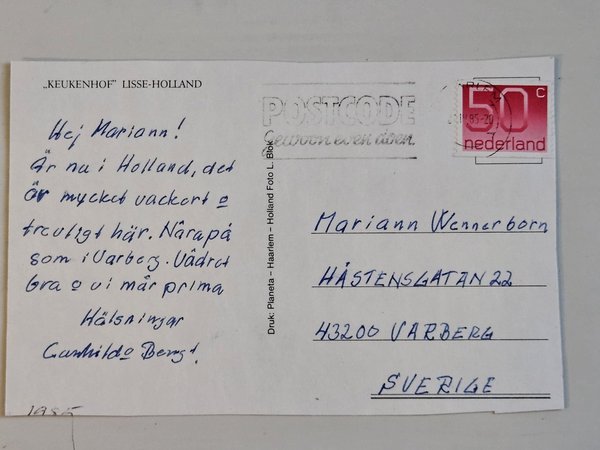 „KEUKENHOF” LISSE-HOLLAND
Hej Mariann!
Är nu i Holland, det
är mycket vackert o
trevligt här. Nära på
som i Varberg. Vädret
bra o vi mår prima
Hälsningar
Gunhild o Bengt.
1985
Druk: Planeta – Haarlem – Holland Foto L. Blok
POSTCODE
Gewoon even doen.
85-20
50 c
nederland
Mariann Wennerborn
HÅSTENSGATAN 22
43200 VARBERG
SVERIGE